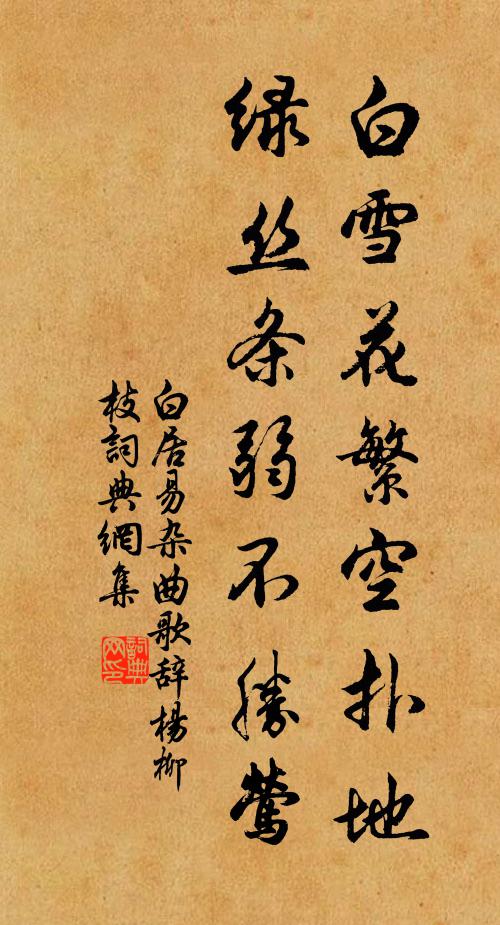 白雪花繁空扑地
绿丝条弱不勝莺
白居易杂曲歌辞楊柳
枝詞典網集
詞典網印